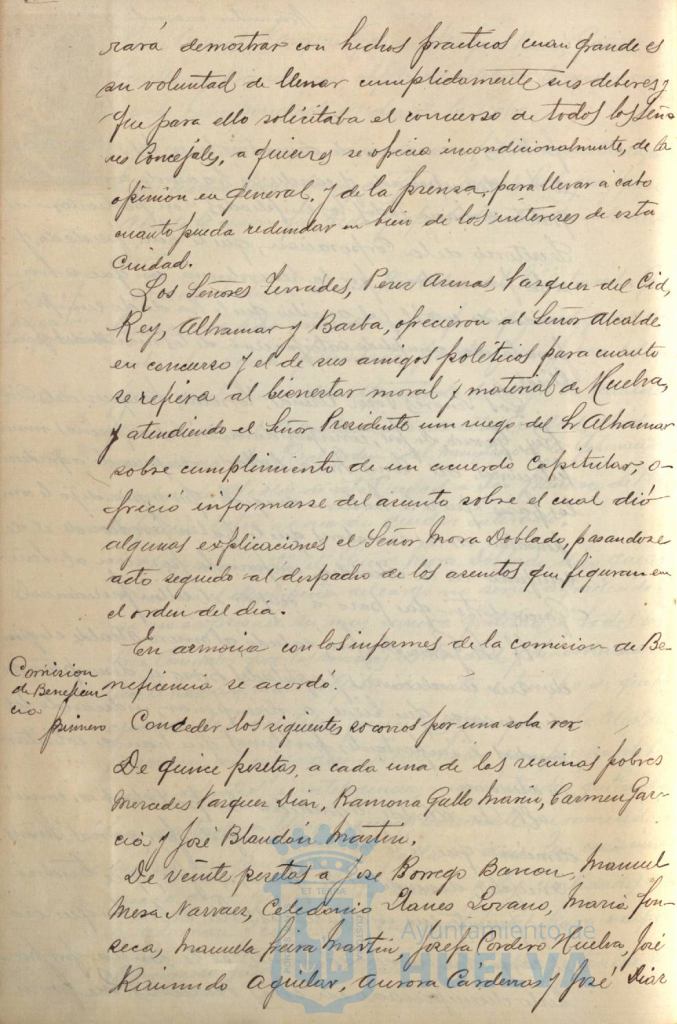 rará demostrar con hechos practicos cuan grande es
su voluntad de llenar cumplidamente sus deberes y
que para ello solicitaba el concurso de todos los Seño-
res Concejales, a quienes se ofrecia incondicionalmente, de la
opinion en general, y de la prensa, para llevar á cabo
cuanto pueda redundar en bien de los intereses de esta
Ciudad.
Los Señores Terrades, Perez Arenas, Vazquez del Cid,
Rey, Alhamar y Barba, ofrecieron al Señor Alcalde
en concurso y el de sus amigos politicos para cuanto
se refiera al bienestar moral y material de Huelva,
y atendiendo el Señor Presidente un ruego del Sr Alhamar
sobre cumplimiento de un acuerdo Capitular, o-
freció informarse del asunto sobre el cual dió
algunas explicaciones el Señor Mora Doblado, pasandose
acto seguido al despacho de los asuntos que figuran en
el orden del dia.
En armonia con los informes de la comision de Be-
neficencia se acordó.
Comision
de Beneficen-
cia
primero Conceder los siguientes socorros por una sola vez
De quince pesetas a cada una de las vecinas pobres
Mercedes Vazquez Diaz, Ramona Gallo Marin, Carmen Gar-
cia y José Blandón Martin.
De veinte pesetas a Jose Borrego Manuel
Mesa Narvaez, Celedonio Llanes Lozano, Maria Fon-
seca, Manuela Martin, Josefa Cordero Huelva, José
Raimundo Aguilar, Aurora Cardenas y José Diaz
Ayuntamiento de
HUELVA